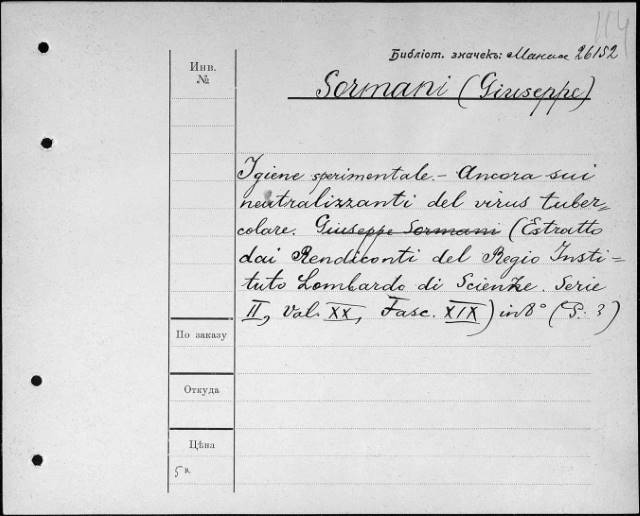 114
Библіот. значекъ: Макси 26152
Инв.
№
Sormani (Giuseppe)
Igiene sperimentale.- Ancora sui
neutralizzanti del virus tuber=
colare. Giuseppe Sormani (Estratto
dai Rendiconti del Regio Insti=
tuto Lombardo di Scienze. Serie
II, Vol. XX, Fasc. XIX) in 8° (S. 3)
По заказу
Откуда
Цѣна
5